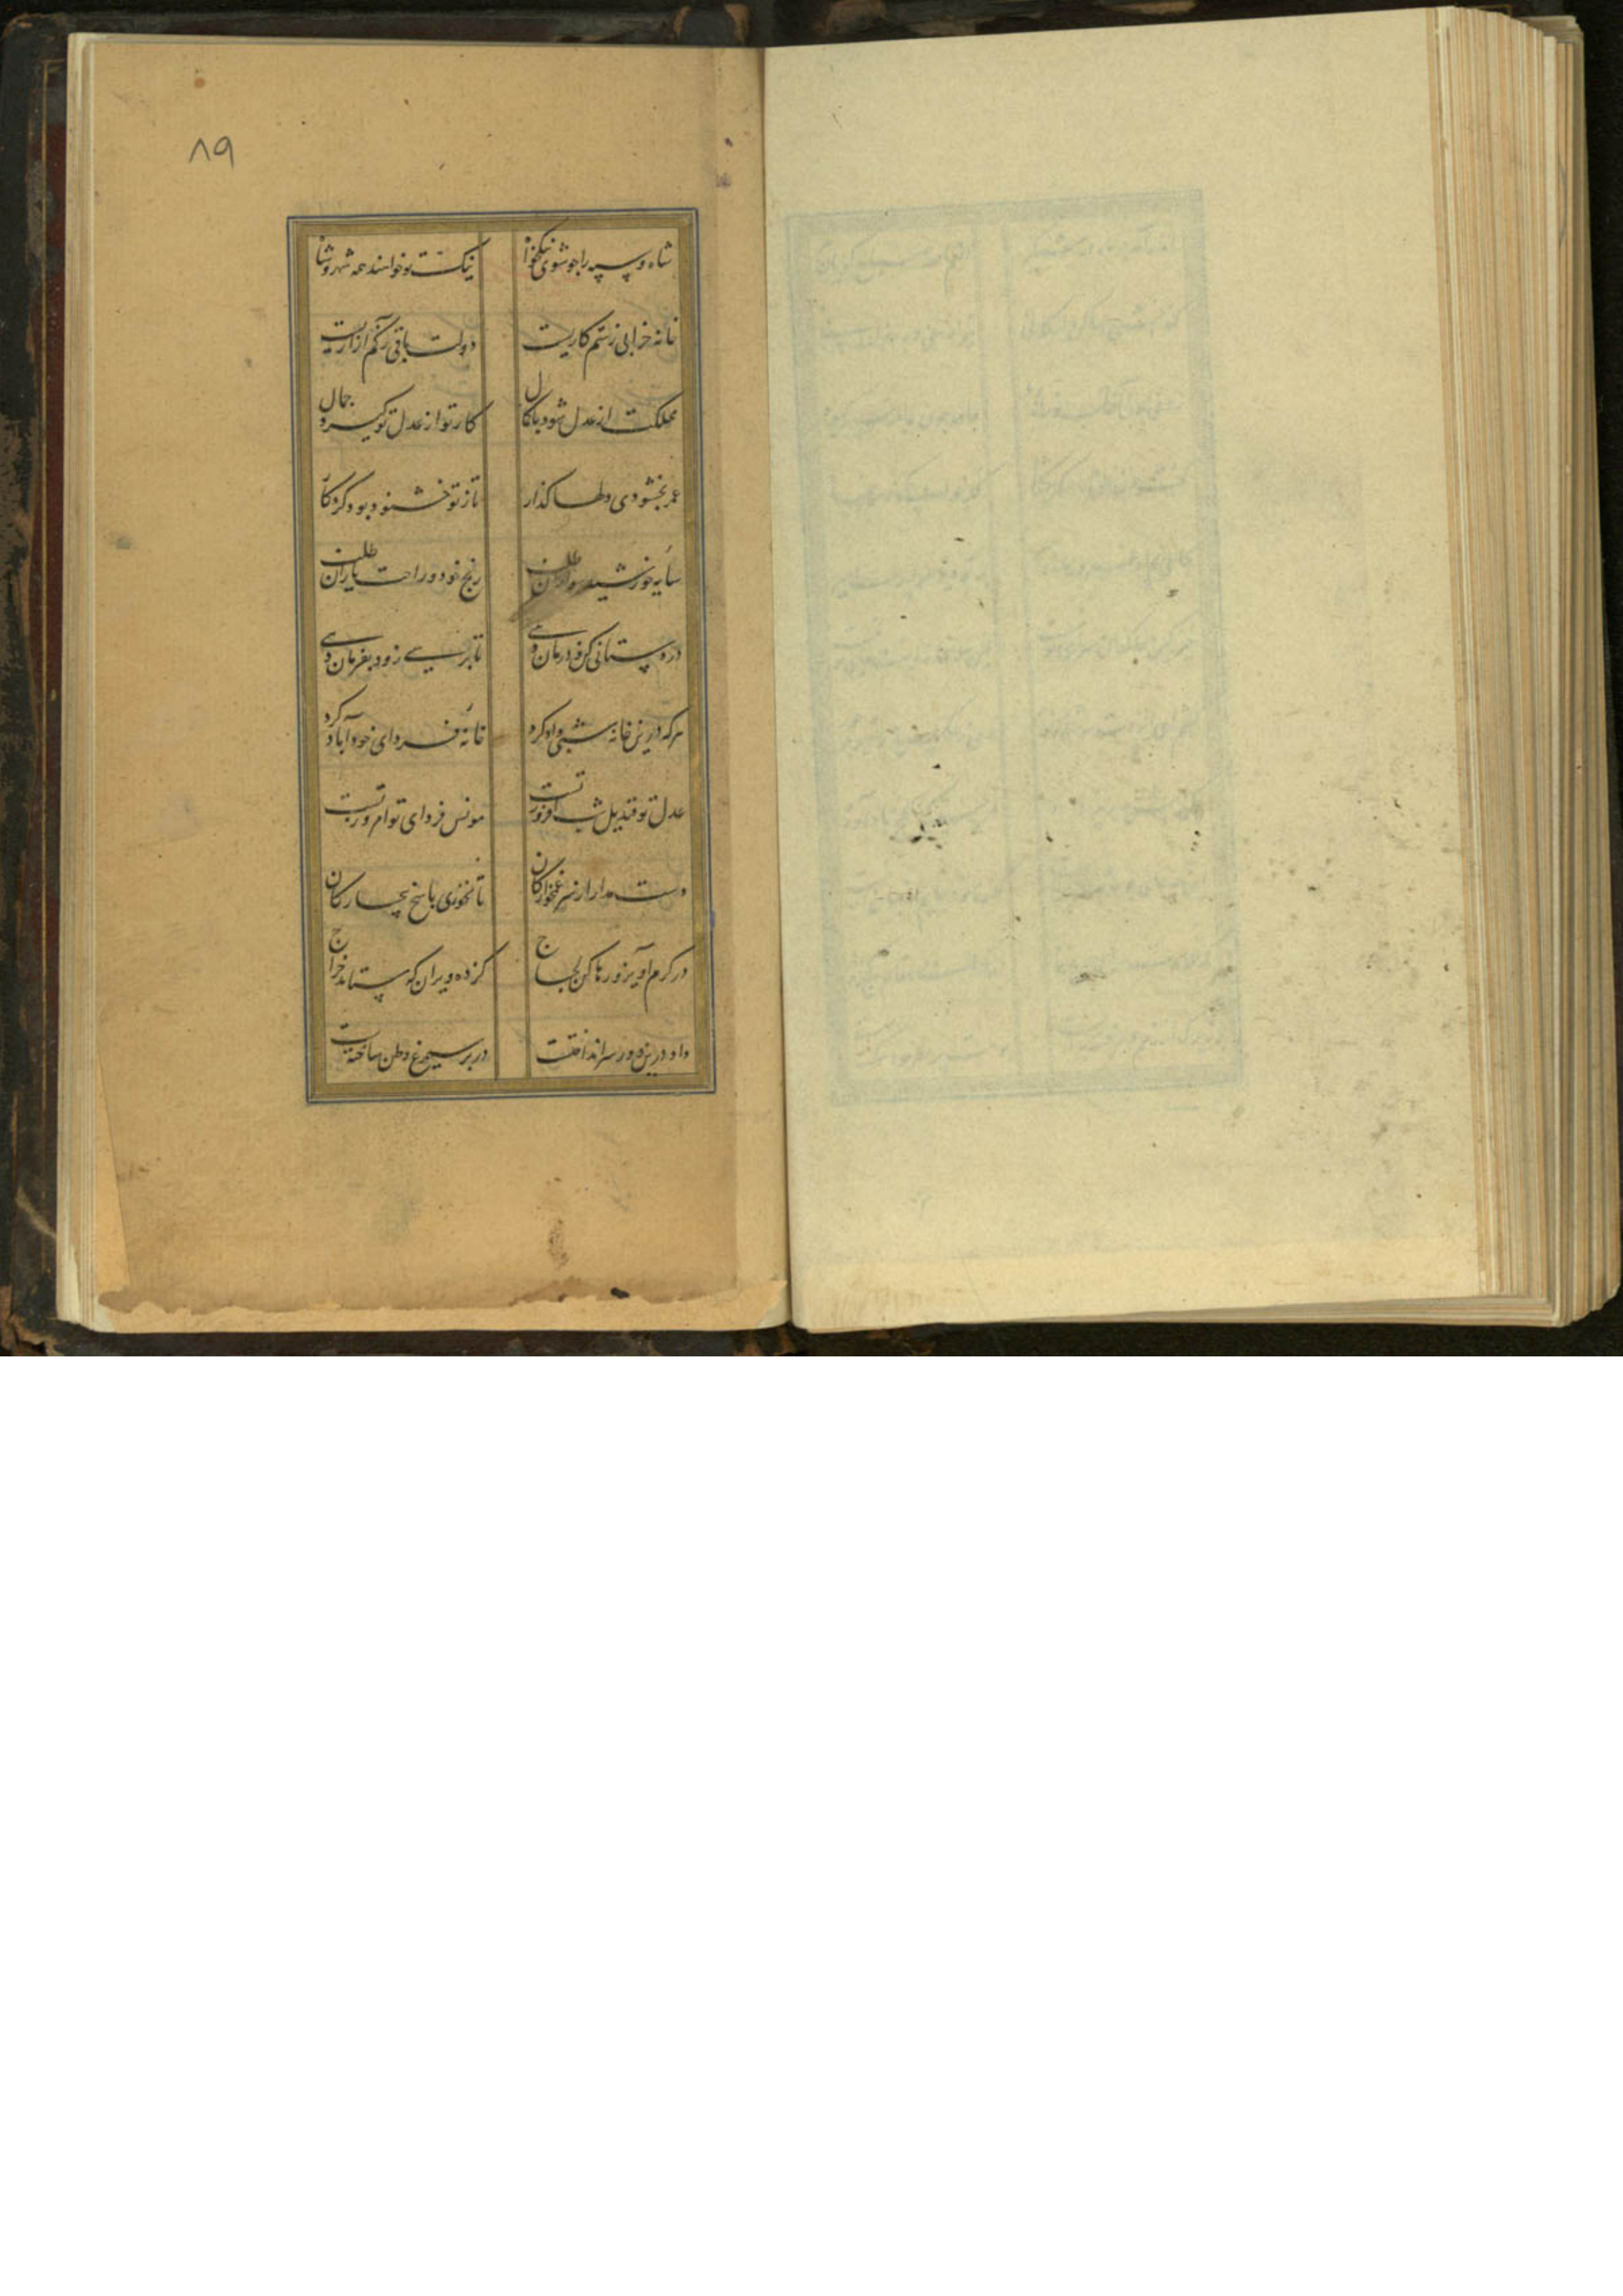 ۸۹
شاه و سپه را چو شوی نیکخواه نیکت تو خواهند همه شهر و شاه
خانه خرابی ز ستم کاریست دولت باقی ز کم آزاریست
مملکت از عدل شود با کمال کار تو از عدل تو گیرد جمال
عمر بخشنودی دلها گذار تا ز تو خشنود بود کردگار
سایه خورشید سواران طلب رنج خود و راحت یاران طلب
درد ستانی کن و درمان دهی تا برسی زود بفرمان دهی
هر که درین خانه شبی داد کرد خانه فردای خود آباد کرد
عدل تو قندیل شب افروز تست مونس فردای تو امروز تست
دست مدار از سر غمخوارگان تا نخوری یاسخ بیچارگان
در کرم آویز و رها کن لجاج کز ده ویران که ستاند خراج
داد درین دور سر انداختست در پر سیمرغ وطن ساختست